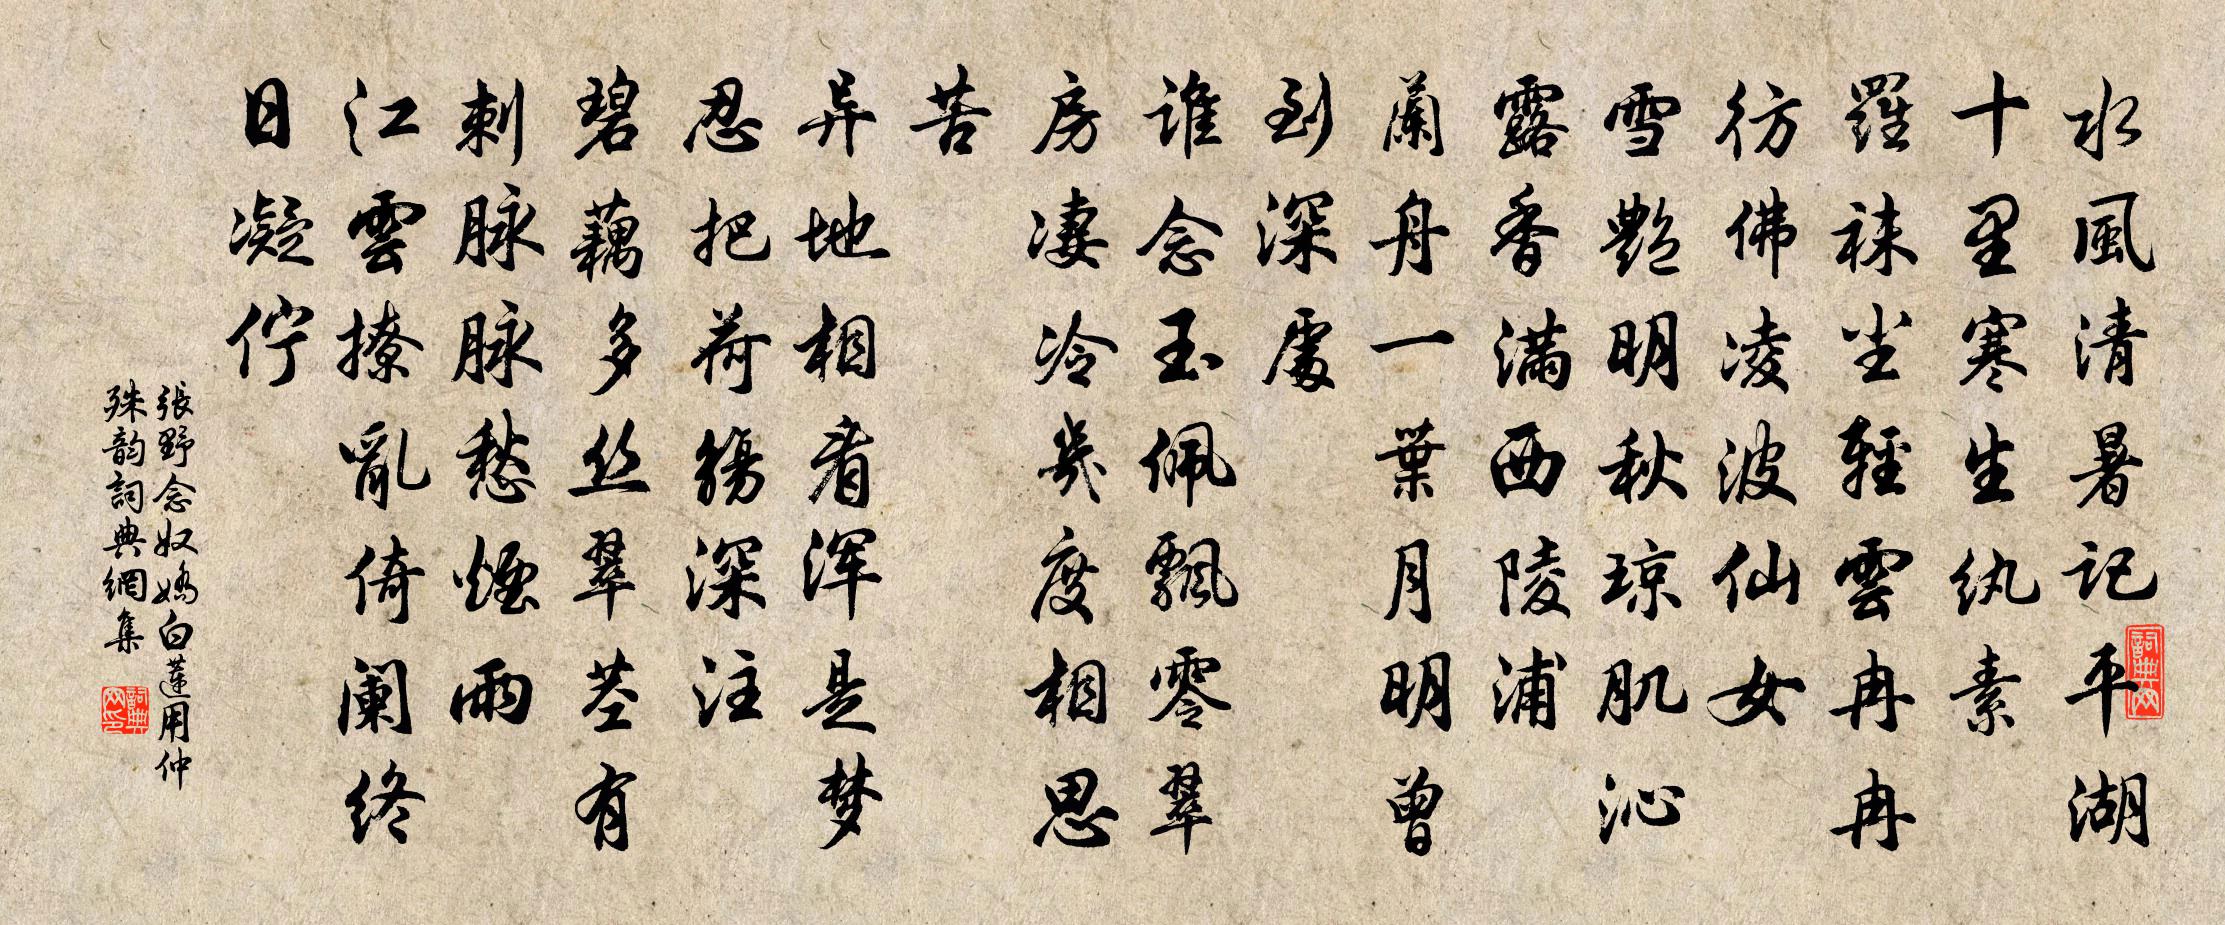 水風清暑記平湖
十里寒生紈素
羅袜尘輕雲冉冉
彷佛凌波仙女
雪艷明秋琼肌沁
露香满西陵浦
蘭舟一葉月明曾
到深處
谁念玉佩飄零翠
房凄冷幾度相思
苦
异地相看浑是梦
忍把荷觴深注
碧藕多丝翠茎有
刺脉脉愁煙雨
江雲撩亂倚阑终
日凝伫
張野念奴嬌白蓮用仲
殊韵詞典網集
詞典网
詞典网印